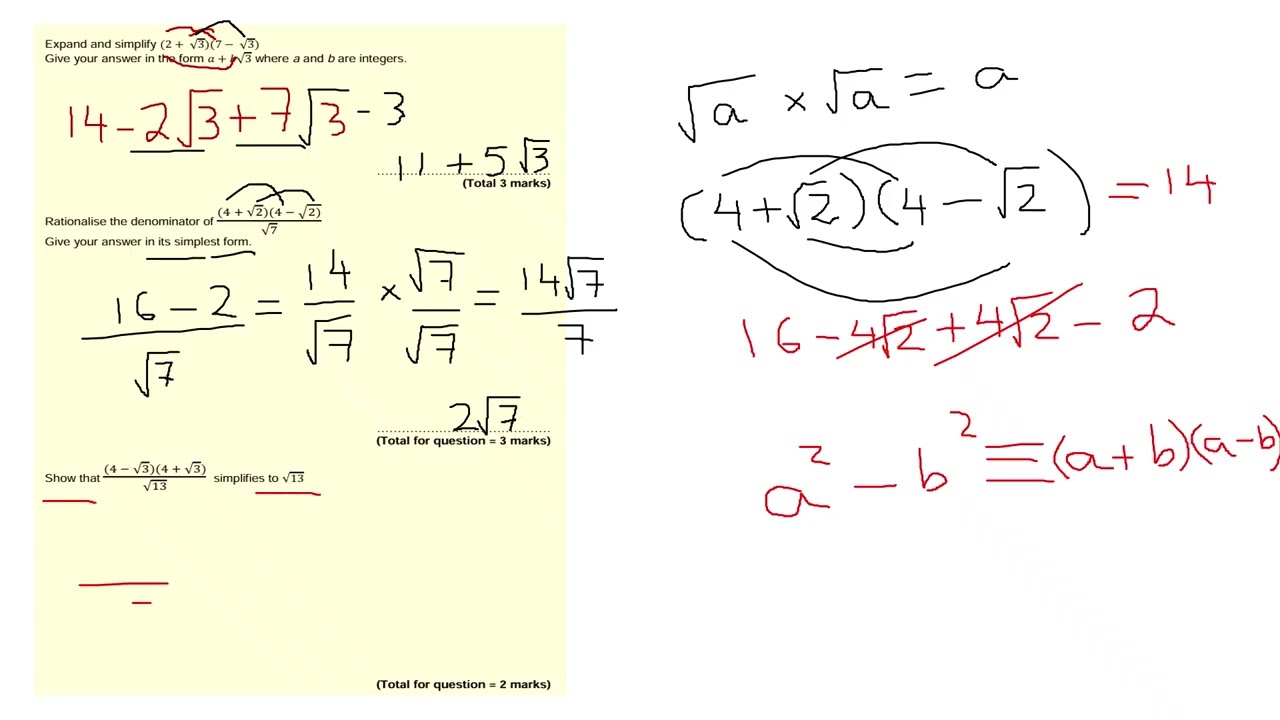 Expand and simplify (2 + √3)(7 − √3)
Give your answer in the form a + b√3 where a and b are integers.
14 − 2√3 + 7√3 − 3
11 + 5√3
(Total 3 marks)
Rationalise the denominator of (4 + √2)(4 − √2) / √7
Give your answer in its simplest form.
16 − 2 / √7 = 14 / √7 × √7 / √7 = 14√7 / 7
2√7
(Total for question = 3 marks)
Show that (4 − √3)(4 + √3) / √13 simplifies to √13
(Total for question = 2 marks)
√a × √a = a
(4 + √2)(4 − √2) = 14
16 − 4√2 + 4√2 − 2
a² − b² ≡ (a + b)(a − b)